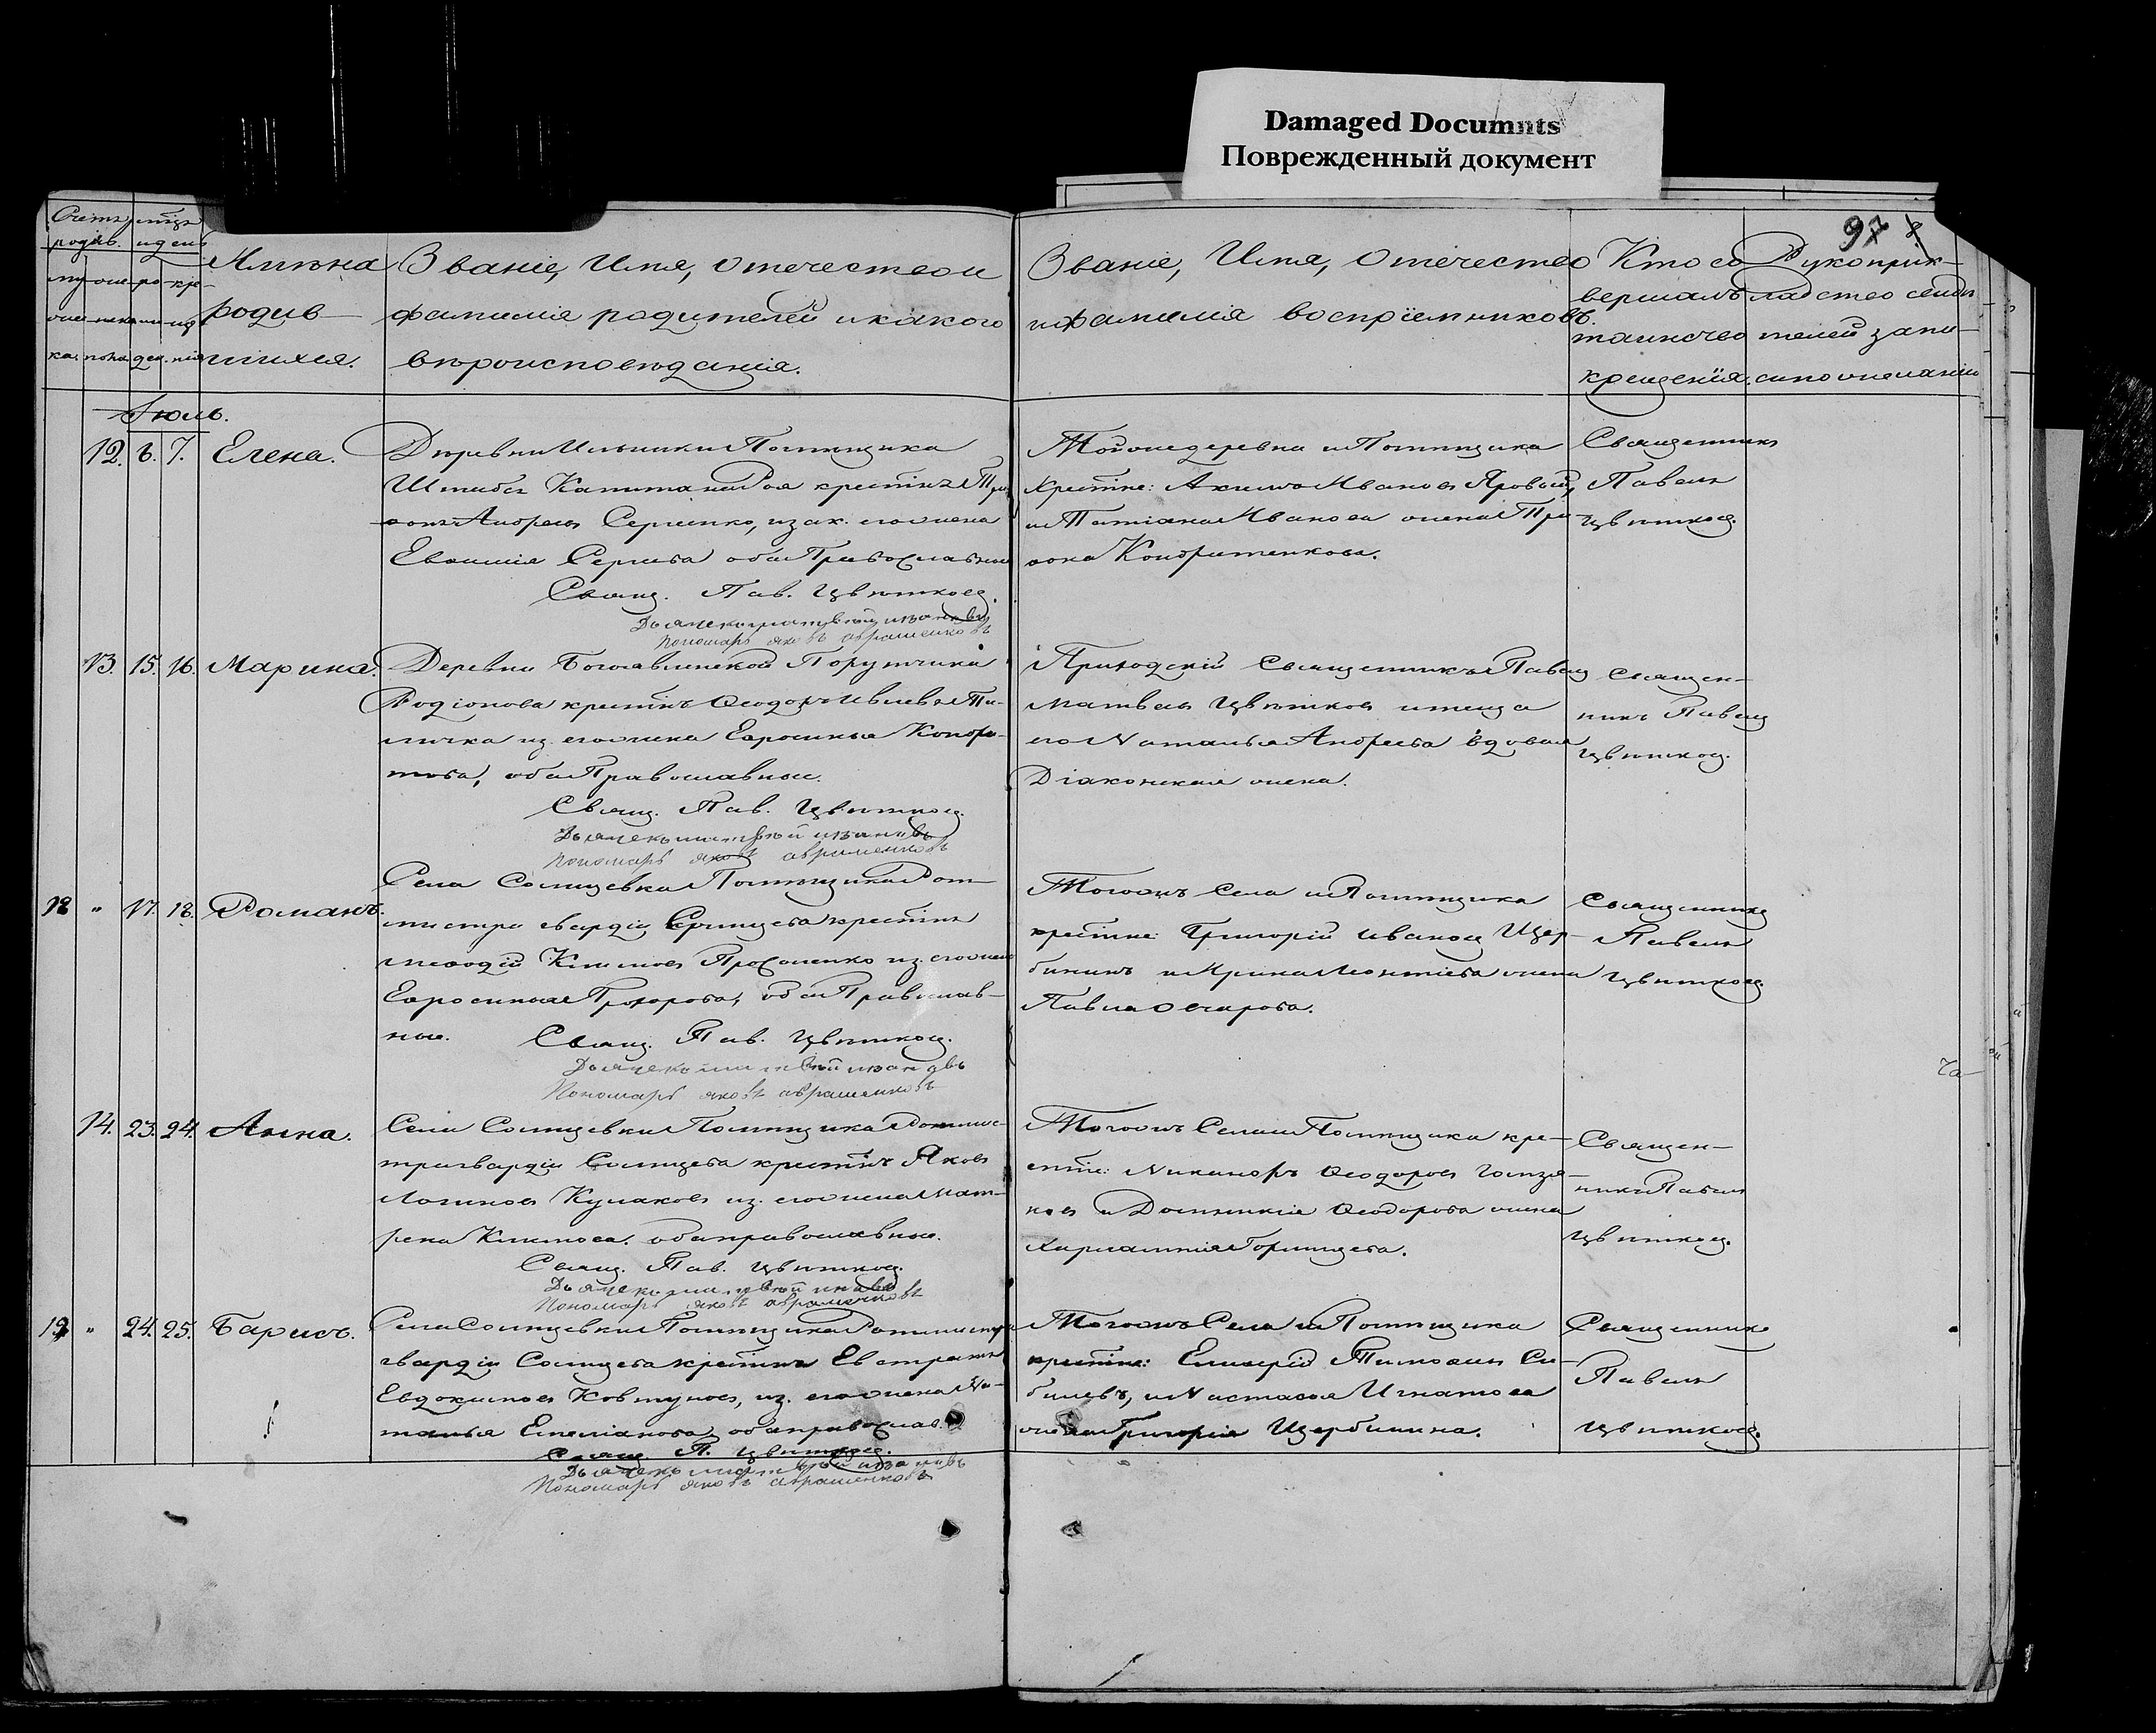 Damaged Documnts
Поврежденный документ
97
Имена
родив-
шихся.
Званіе, Имя, Отечество и
фамилія родителей и какого
вѣроисповѣданія.
Званіе, Имя, Отечество
и фамилія воспріемниковъ.
Кто со
вершалъ
таинство
крещенія.
Рукоприк-
ладство свидѣ
телей запи-
си по желанію
Іюль.
12. 6. 7. Елена.
Деревни Ильинки Помѣщика
Штабсъ Капитана Роя крестин Три
фонъ Андреевъ Сергѣнко, и зак. его жена
Евфимія Сергѣева оба Православные
Свящ. Пав. Цвѣтковъ.
Дьячекъ матвѣй ивановъ
Пономарь яковъ авраменковъ
Тойже деревни и Помѣщика
Крестіне: Акимъ Ивановъ Яровый,
и Татіана Иванова жена Три-
фона Кондратенкова.
Священникъ
Павелъ
Цвѣтковъ.
13. 15. 16. Марина.
Деревни Богоявленской Порутчика
Родіонова крестінъ Ѳеодоръ Ивлевъ
из. его жена Евросинья Кондра-
това, оба Православные.
Свящ. Пав. Цвѣтковъ.
Дьячекъ матвѣй ивановъ
Пономарь яковъ авраменковъ
Приходскій Священникъ Павелъ
Матвѣевъ Цвѣтковъ и теща
его Наталья Андреева вдовая
Діаконская жена.
Священ-
никъ Павелъ
Цвѣтковъ.
18 " 17. 18. Романъ.
Села Солнцевки Помѣщика Рот-
мистра гвардіи Солнцева крестінъ
меѳодій Климовъ из. его жена
Евросинья Прохорова, оба Православ-
ные. Свящ. Пав. Цвѣтковъ.
Дьячекъ матвѣй ивановъ
Пономарь яковъ авраменковъ
Тогожъ Села и Помѣщика
крестіне: Григорій Ивановъ Щер-
бининъ и Ирина Леонтіева жена
Павла Овчарова.
Священникъ
Павелъ
Цвѣтковъ.
14. 23. 24. Анна.
Села Солнцевки Помѣщика Ротмис-
тра гвардіи Солнцева крестінъ Яковъ
Логиновъ Кулаковъ из. его жена Мат-
рена Климова. оба православные.
Свящ. Пав. Цвѣтковъ.
Дьячекъ матвѣй ивановъ
Пономарь яковъ авраменковъ
Тогожъ Села и Помѣщика кре-
стіне: Никаноръ Ѳеодоровъ
и Домникія Ѳеодорова жена
Харлампія
Священ-
никъ Павелъ
Цвѣтковъ.
19 " 24. 25. Барисъ.
Села Солнцевки Помѣщика Ротмистра
гвардіи Солнцева крестінъ Евстратъ
Евдокимовъ Ковтуновъ, из. его жена На-
талья Емеліанова оба православ.
Свящ. П. Цвѣтковъ.
Дьячекъ матвѣй ивановъ
Пономарь яковъ авраменковъ
Тогожъ Села и Помѣщика
крестіне: Елисеій Тимофеевъ Си-
билевъ, и Настасья Игнатова
жена Григорія Щербинина.
Священникъ
Павелъ
Цвѣтковъ.